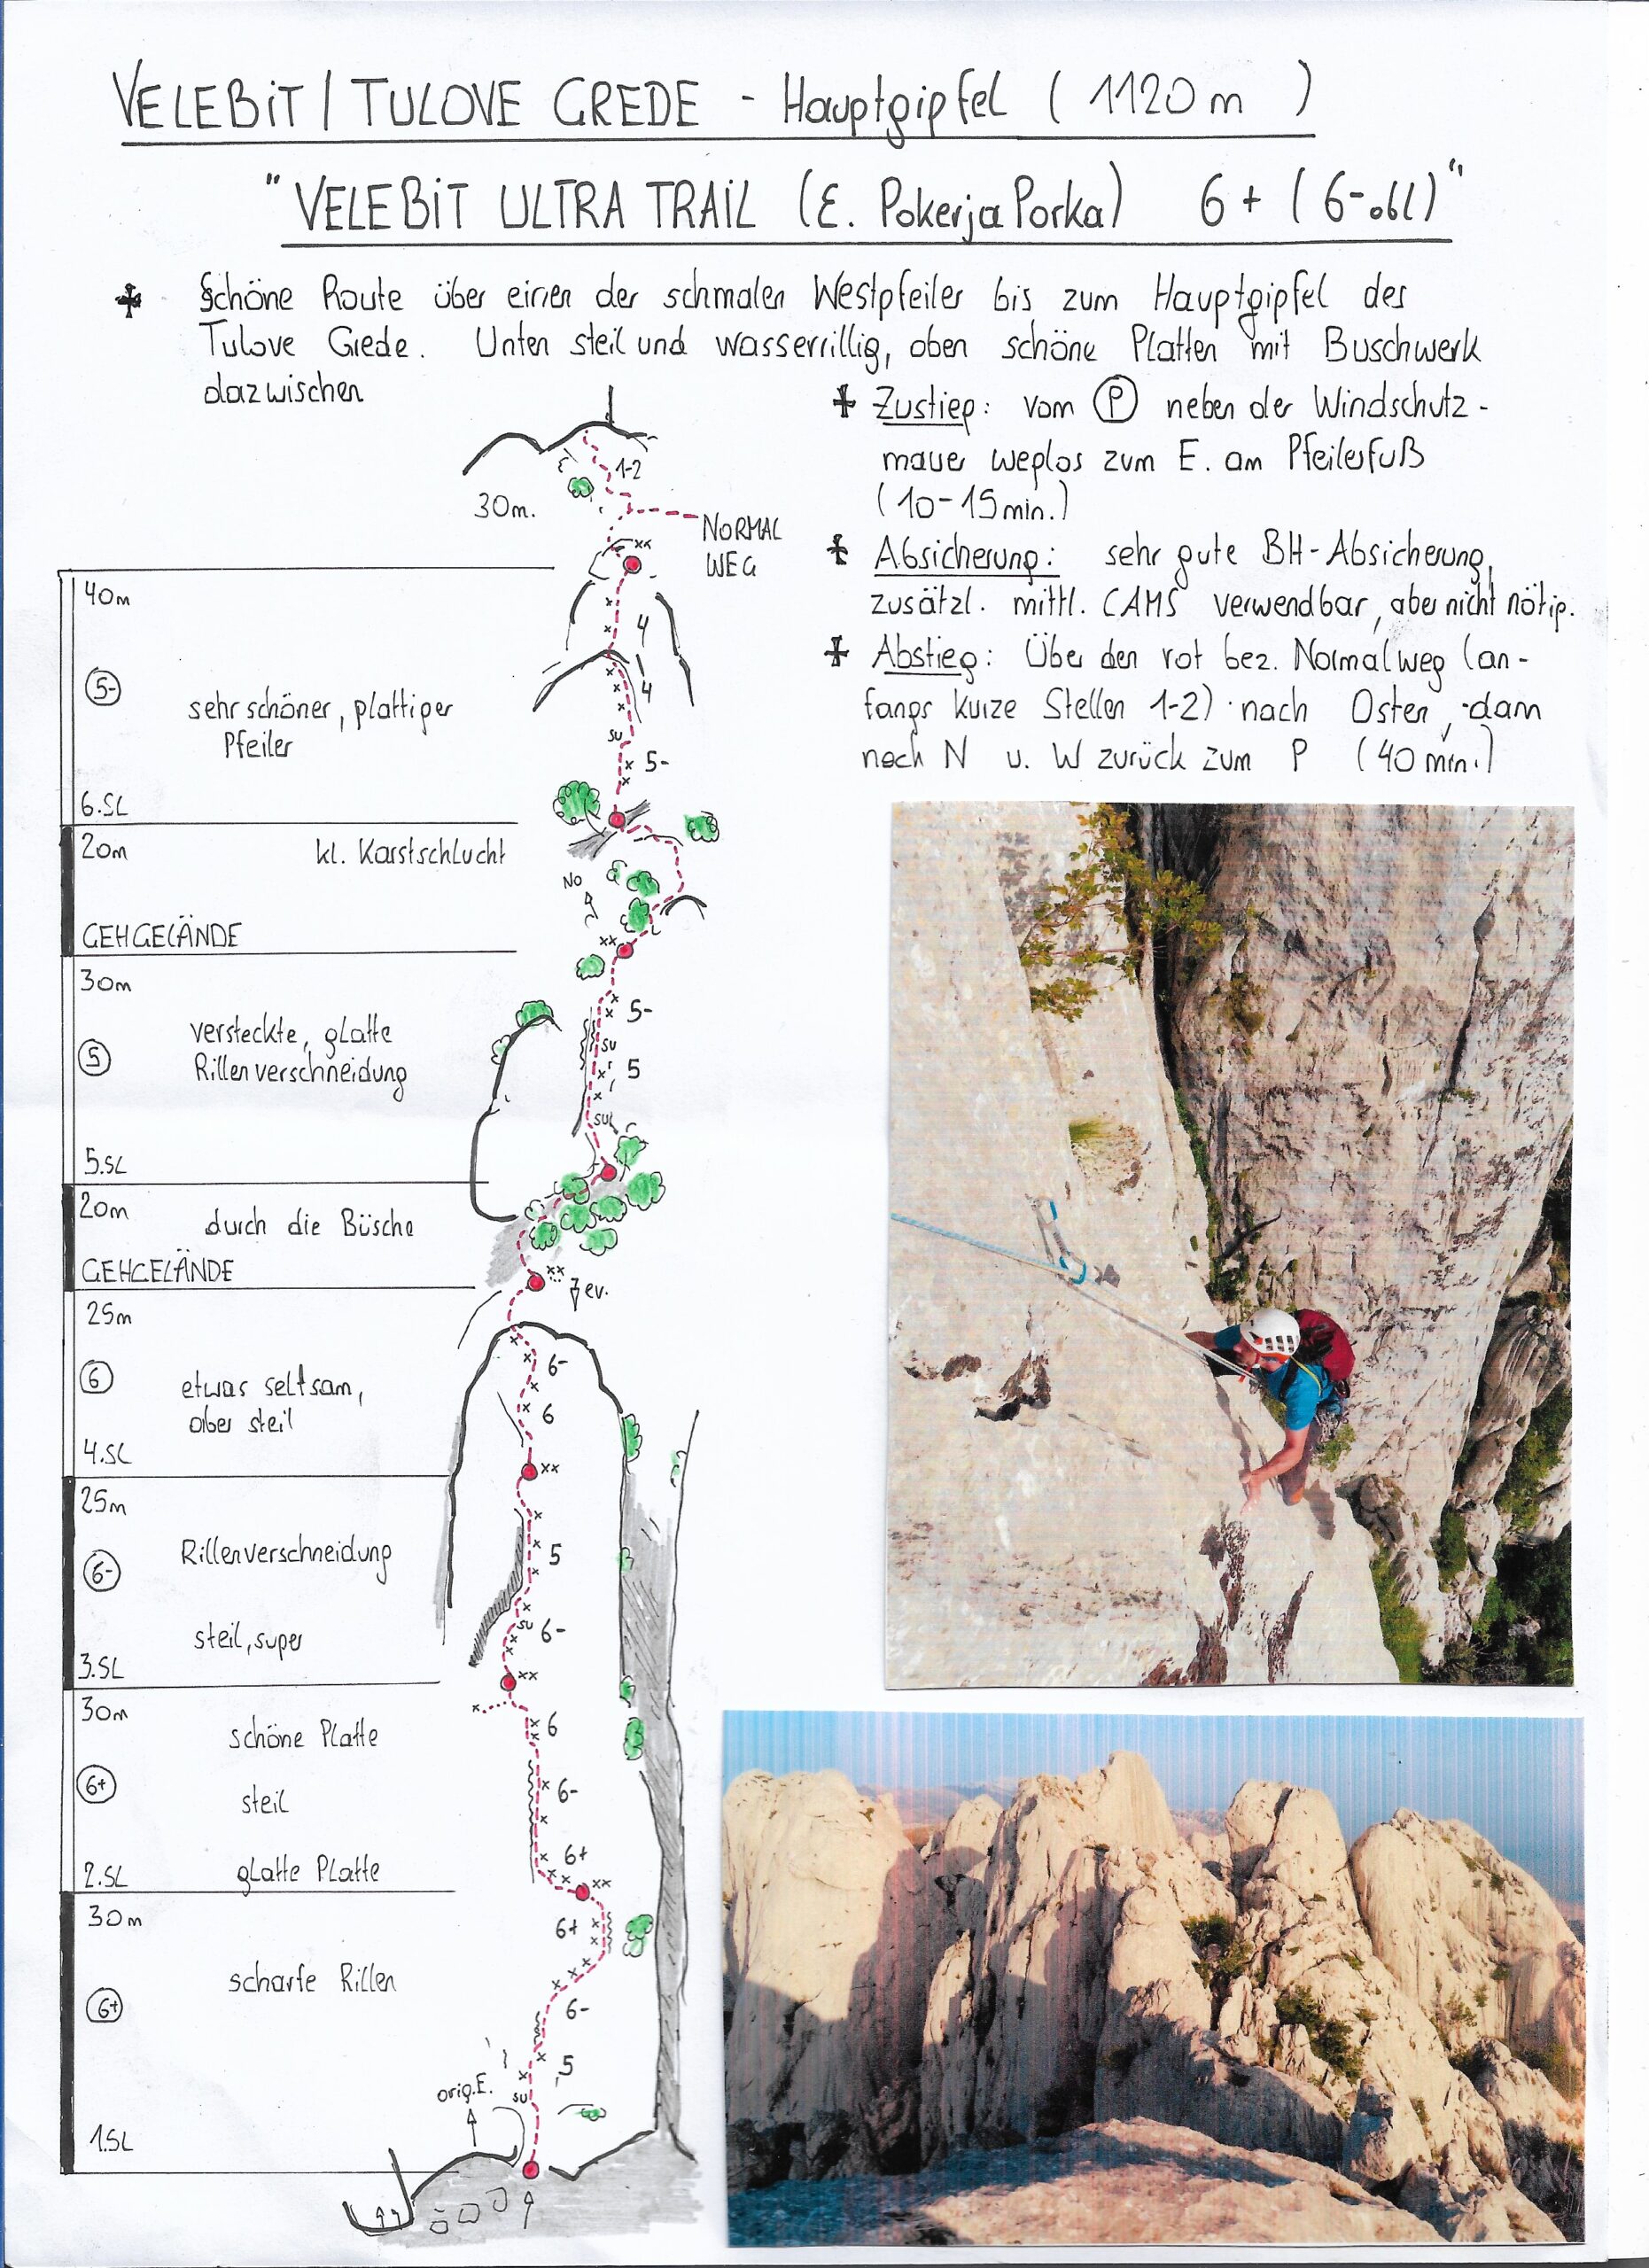 VELEBiT / TULOVE GREDE - Hauptgipfel ( 1120 m )
"VELEBiT ULTRA TRAiL (E. Pokerja Porka) 6+ (6- obl)"
Schöne Route über einen der schmalen Westpfeiler bis zum Hauptgipfel des
Tulove Grede. Unten steil und wasserrillig, oben schöne Platten mit Buschwerk
dazwischen
Zustieg: vom P neben der Windschutz-
mauer weglos zum E. am Pfeilerfuß
(10-15 min.)
Absicherung: sehr gute BH-Absicherung,
zusätzl. mittl. CAMS verwendbar, aber nicht nötig.
Abstieg: Über den rot bez. Normalweg (an-
fangs kurze Stellen 1-2) nach Osten, dann
nach N u. W zurück zum P (40 min.)
1-2
30m.
NORMAL
WEG
xx
40m
4
5-
4
sehr schöner, plattiger
Pfeiler
su
5-
6.SL
20m
kl. Karstschlucht
NO
GEHGELÄNDE
xx
30m
5-
versteckte, glatte
Rillenverschneidung
su
5
5
su
5.SL
20m
durch die Büsche
GEHGELÄNDE
xx
ev.
25m
6-
6
etwas seltsam,
aber steil
6
4.SL
xx
25m
Rillenverschneidung
5
6-
su
6-
steil, super
3.SL
xx
30m
schöne Platte
6
6+
steil
6-
6+
2.SL
glatte Platte
xx
30m
6+
scharfe Rillen
6+
6-
5
orig.E.
su
1.SL